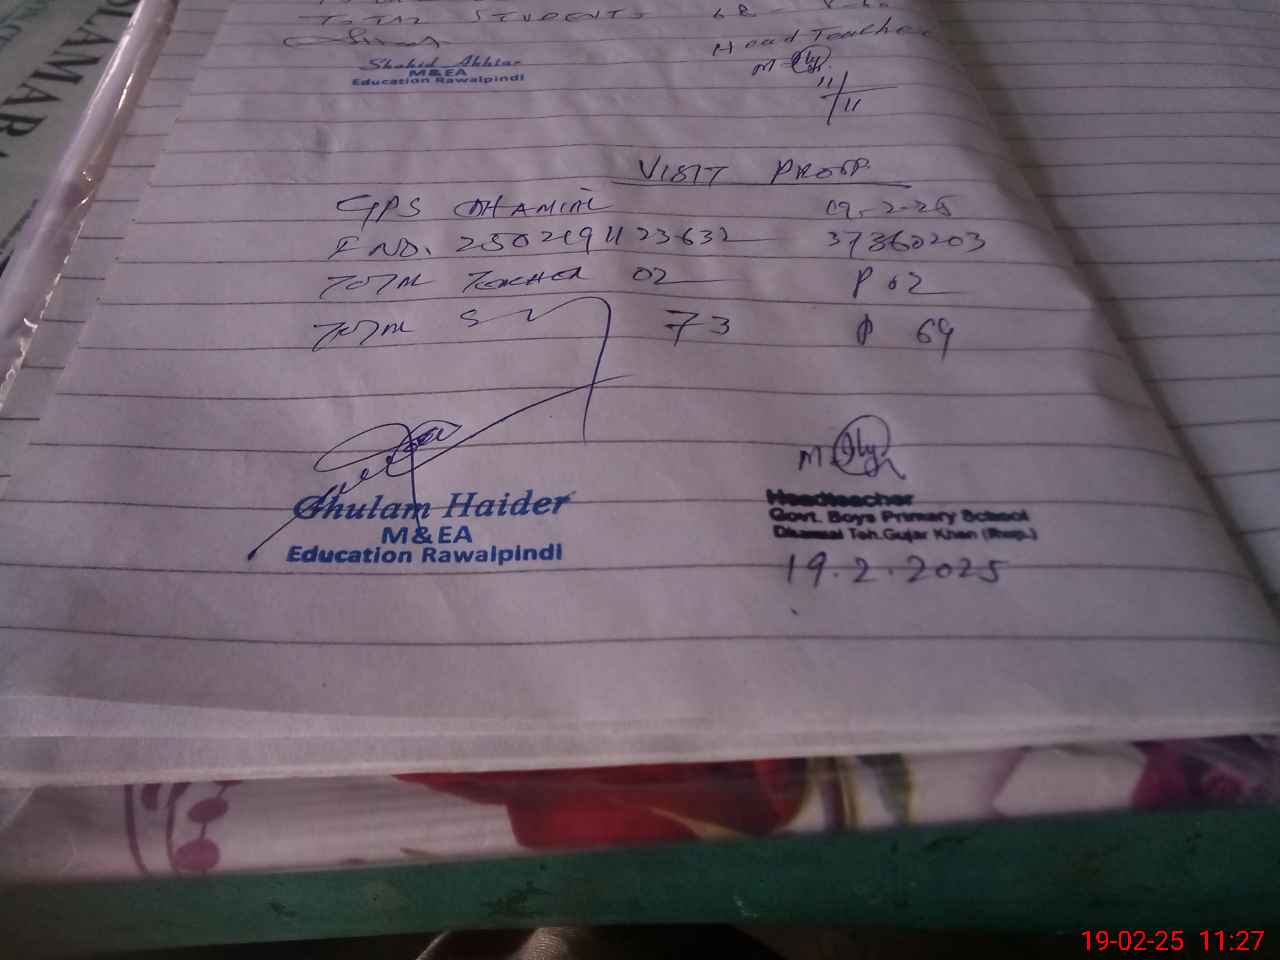 TOTAL STUDENTS 68
Head Teacher
Shahid Akhtar
M&EA
Education Rawalpindi
11/11
VISIT PROOF
GPS DHAMIAL 19-2-25
F NO. 250219112363 37360203
TOTAL TEACHER 02 P 02
TOTAL ST 73 P 69
Ghulam Haider
M&EA
Education Rawalpindi
Headteacher
Govt. Boys Primary School
Teh. Gujar Khan
19.2.2025
19-02-25 11:27